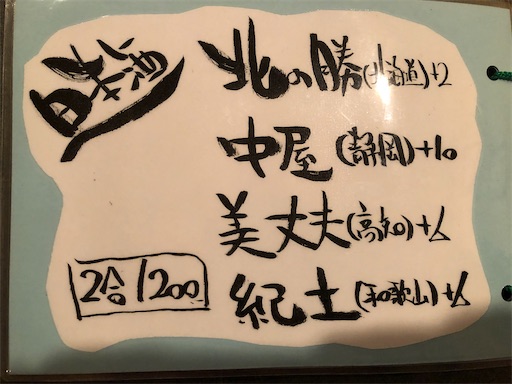 日本酒
北の勝(北海道)+2
中屋(静岡)+10
美丈夫(高知)+6
紀土(和歌山)+6
2合1200